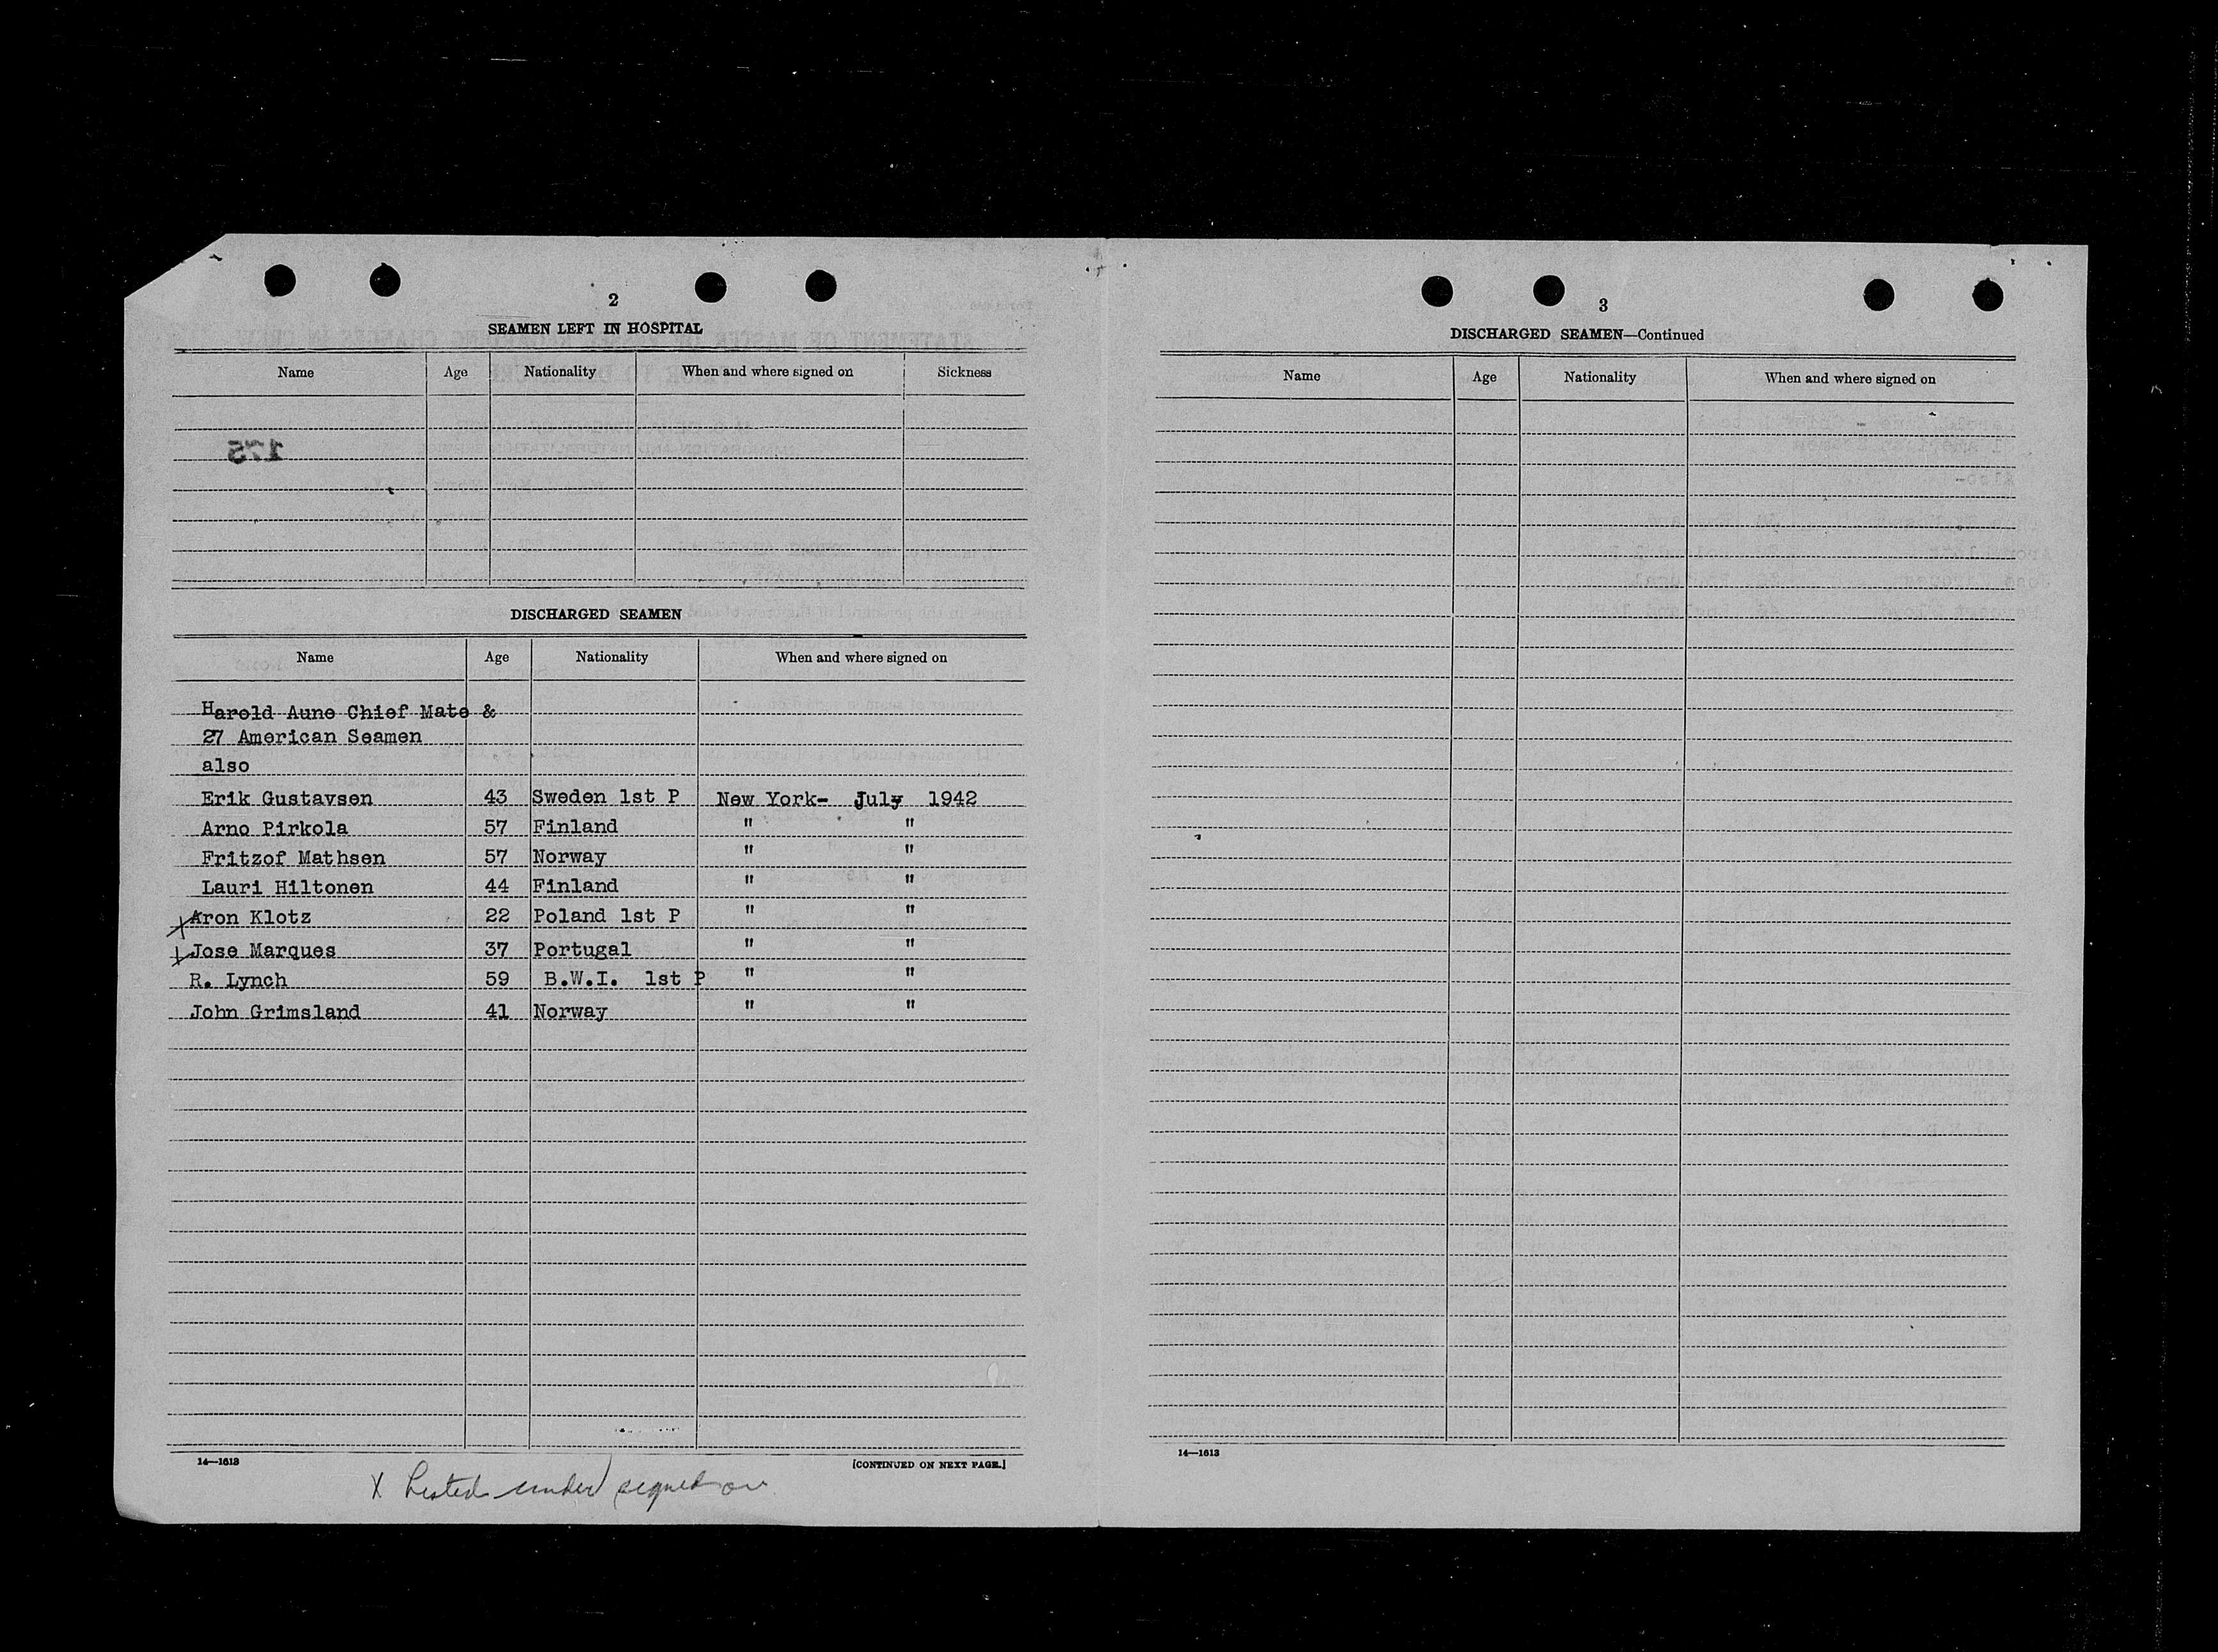 2
SEAMEN LEFT IN HOSPITAL
Name Age Nationality When and where signed on Sickness
175
DISCHARGED SEAMEN
Name Age Nationality When and where signed on
Harold Aune Chief Mate &
27 American Seamen
also
Erik Gustavsen 43 Sweden 1st P New York- July 1942
Arno Pirkola 57 Finland " "
Fritzof Mathsen 57 Norway " "
Lauri Hiltonen 44 Finland " "
X Aron Klotz 22 Poland 1st P " "
X Jose Marques 37 Portugal " "
R. Lynch 59 B.W.I. 1st P " "
John Grimsland 41 Norway " "
14—1613 [CONTINUED ON NEXT PAGE.]
X Listed under signed on
3
DISCHARGED SEAMEN—Continued
Name Age Nationality When and where signed on
14—1613